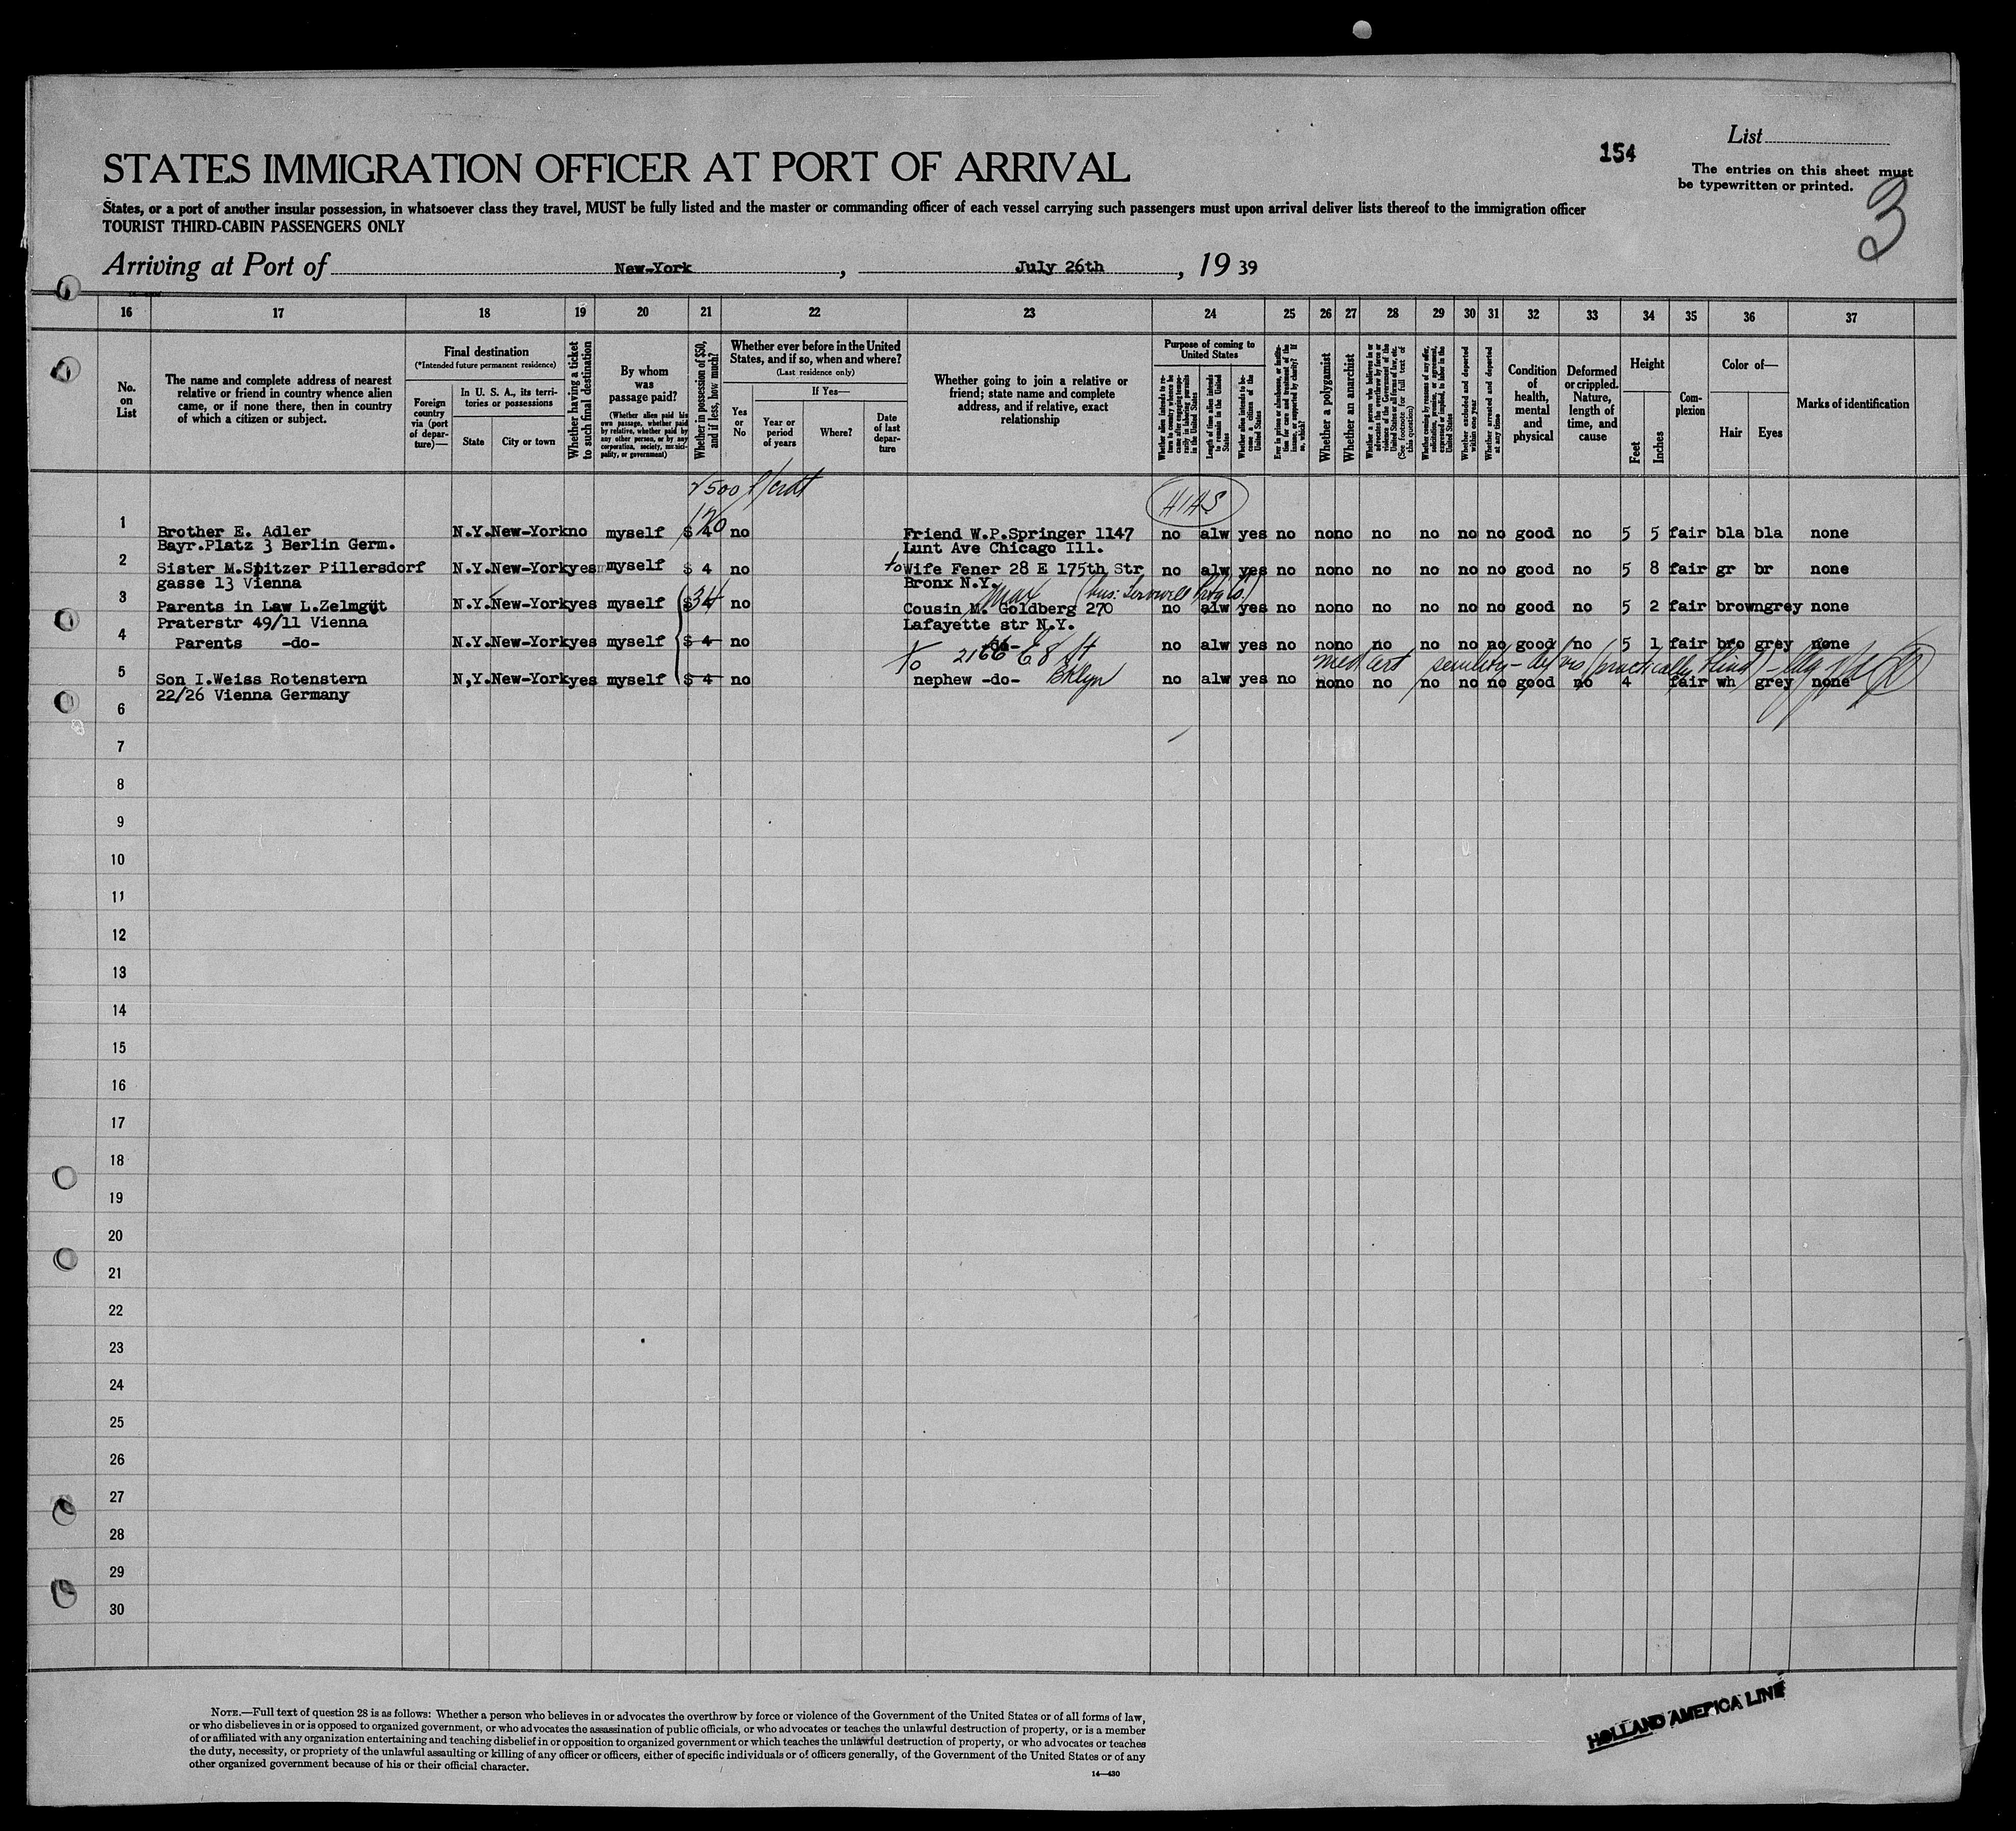 List
154
The entries on this sheet must
be typewritten or printed.
3
STATES IMMIGRATION OFFICER AT PORT OF ARRIVAL
States, or a port of another insular possession, in whatsoever class they travel, MUST be fully listed and the master or commanding officer of each vessel carrying such passengers must upon arrival deliver lists thereof to the immigration officer
TOURIST THIRD-CABIN PASSENGERS ONLY
Arriving at Port of New-York, July 26th, 19 39
16 17 18 19 20 21 22 23 24 25 26 27 28 29 30 31 32 33 34 35 36 37
No.
on
List
The name and complete address of nearest
relative or friend in country whence alien
came, or if none there, then in country
of which a citizen or subject.
Final destination
(*Intended future permanent residence)
Foreign
country
via (port
of depar-
ture)—
In U. S. A., its terri-
tories or possessions
State
City or town
Whether having a ticket
to such final destination
By whom
was
passage paid?
(Whether alien paid his
own passage, whether paid
by relative, whether paid by
any other person, or by any
corporation, society, munici-
pality, or government)
Whether in possession of $50,
and if less, how much?
Whether ever before in the United
States, and if so, when and where?
(Last residence only)
Yes
or
No
If Yes—
Year or
period
of years
Where?
Date
of last
depar-
ture
Whether going to join a relative or
friend; state name and complete
address, and if relative, exact
relationship
Purpose of coming to
United States
Whether alien intends to re-
turn to country whence he
came after engaging tempo-
rarily in laboring pursuits
in the United States
Length of time alien intends
to remain in the United
States
Whether alien intends to be-
come a citizen of the
United States
Ever in prison or almshouse, or institu-
tion for care and treatment of the
insane, or supported by charity? If
so, which?
Whether a polygamist
Whether an anarchist
Whether a person who believes in or
advocates the overthrow by force or
violence of the Government of the
United States or all forms of law, etc.
(See footnote for full text of
this question)
Whether coming by reasons of any offer,
solicitation, promise, or agreement,
expressed or implied, to labor in the
United States
Whether excluded and deported
within one year
Whether arrested and deported
at any time
Condition
of
health,
mental
and
physical
Deformed
or crippled.
Nature,
length of
time, and
cause
Height
Feet
Inches
Com-
plexion
Color of—
Hair
Eyes
Marks of identification
HIAS
1 Brother E. Adler N.Y. New-York no myself $ 4 no Friend W.P.Springer 1147 no alw yes no no no no no no no good no 5 5 fair bla bla none
120
Bayr.Platz 3 Berlin Germ. Lunt Ave Chicago Ill.
2 Sister M.Spitzer Pillersdorf N.Y. New-York yes myself $ 4 no to Wife Fener 28 E 175th Str no alw yes no no no no no no no good no 5 8 fair gr br none
gasse 13 Vienna Bronx N.Y.
Max
3 Parents in Law L.Zelmgut N.Y. New-York yes myself $34 no Cousin M. Goldberg 270 no alw yes no no no no no no no good no 5 2 fair brown grey none
Praterstr 49/11 Vienna Lafayette str N.Y.
4 Parents -do- N.Y. New-York yes myself $ 4 no -do- no alw yes no no no no no no no good no 5 1 fair bro grey none
To 2166 E 8 St
Bklyn
med cert senility - (practically blind)
5 Son I.Weiss Rotenstern N,Y. New-York yes myself $ 4 no nephew -do- no alw yes no no no no no no no good no 4 fair wh grey none
22/26 Vienna Germany
6
7
8
9
10
11
12
13
14
15
16
17
18
19
20
21
22
23
24
25
26
27
28
29
30
NOTE.—Full text of question 28 is as follows: Whether a person who believes in or advocates the overthrow by force or violence of the Government of the United States or of all forms of law,
or who disbelieves in or is opposed to organized government, or who advocates the assassination of public officials, or who advocates or teaches the unlawful destruction of property, or is a member
of or affiliated with any organization entertaining and teaching disbelief in or opposition to organized government or which teaches the unlawful destruction of property, or who advocates or teaches
the duty, necessity, or propriety of the unlawful assaulting or killing of any officer or officers, either of specific individuals or of officers generally, of the Government of the United States or of any
other organized government because of his or their official character.
14—430
HOLLAND AMERICA LINE